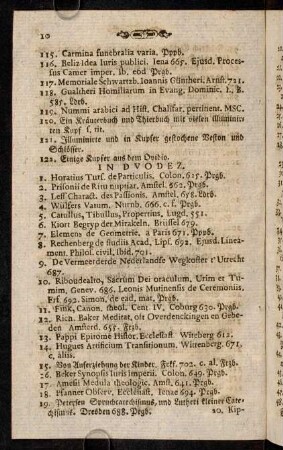 10
115. Carmina funebralia varia. Ppvb.
116. Beliz Idea Iuris publici. Iena 665. Ejusd. Proces-
sus Camer imper. ib. eod. Prgb.
117. Memoriale Schwartzb. Ioannis Güntheri. Arnst. 721.
118. Gualtheri Homiliarum in Evang. Dominic. I. B.
585. Ldrb.
119. Nummi arabici ad Hist. Chalifar. pertinent. MSC.
120. Ein Kräuterbuch und Thierbuch mit vielen illuminir-
ten Kupf s. tit.
121. Illuminirte und in Kupfer gestochene Veston und
Schlösser.
122. Einige Kupfer aus dem Ovidio.
IN DVODEZ.
1. Horatius Turs. de Particulis. Colon. 625. Prgb.
2. Prisonii de Ritu nuptiar. Amstel. 662. Prgb.
3. Less Charact. des Passionis. Amstel. 678. Ldrb.
4. Wülfers Vatum. Nurnb. 666. c. f. Prgb.
5. Catullus, Tibullus, Propertius, Lugd. 551.
6. Kiort Begryp der Mirakeln. Brüssel 679.
7. Elemens de Geometrie, a Paris 671. Ppvb.
8. Rechenberg de studiis Acad. Lips. 692. Ejusd. Linea-
ment. Philos. civil. ibid. 701.
9. De Vermeerderde Nederlandse Wegkoster t'Utrecht
687.
10. Riboudealro, Sacrum Dei oraculum, Urim et Tu-
mim, Genev. 686. Leonis Mutinensis de Ceremoniis,
Erf. 692. Simon, de ead. mat. Prgb.
11. Funk, Canon. theol. Cent. IV. Coburg 630. Prgb.
12. Rich. Baker Mediter. ofs Overdenckingen en Gebe-
den Amsterd. 658. Frzb.
13. Pappi Epitome Histor. Ecclesiast. Witeberg 612.
14. Hugues Artificium Transitionum, Wittenberg. 671.
c. aliis.
15. Von Auferziehung der Kinder. Frkf. 702. c. al. Frzb.
16. Beker Synopsis Iuris Imperii. Colon. 649. Prgb.
17. Amesii Medula theologic. Amst. 641. Prgb.
18. Pfanner Observ. Ecclesiast, Ienae 694. Prgb.
19. Petersen Spruchcatechismus, und Lutheri kleiner Cate-
chismus. Dresden 688. Prgb.
20. Kip-